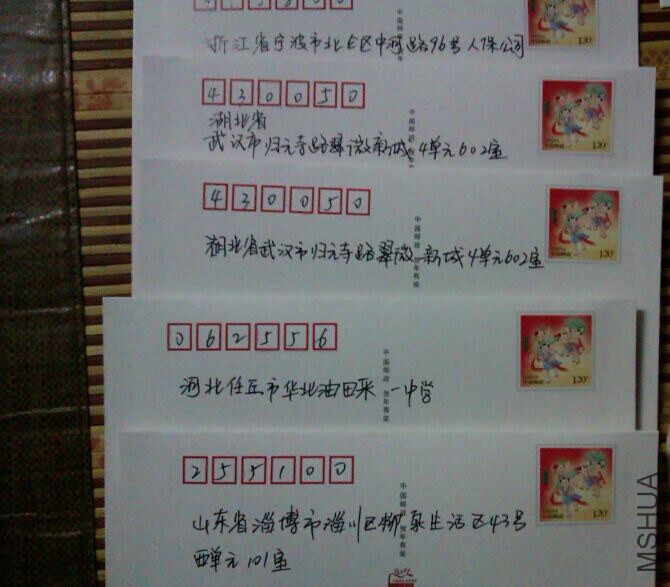 浙江省宁波市北仑区中河路96号人保公司
中国邮政
430050
湖北省
武汉市归元寺路翠微新城4单元602室
1.20元
中国邮政
430050
湖北省武汉市归元寺路翠微新城4单元602室
中国邮政 贺年有奖
1.20元
062556
河北任丘市华北油田采一中学
中国邮政 贺年有奖
1.20元
255100
山东省淄博市淄川区柳泉生活区43号
西单元101室
中国邮政 贺年有奖
1.20元
MSHUA